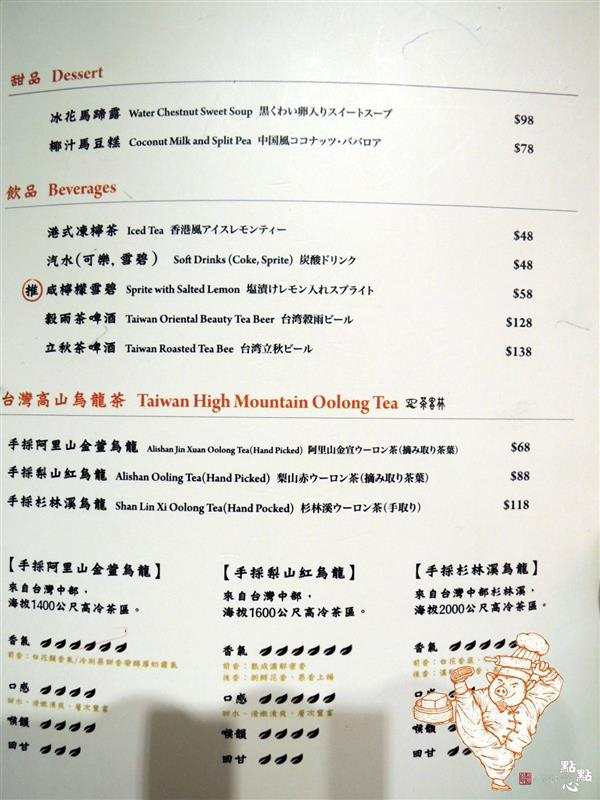 甜品 Dessert
冰花馬蹄露 Water Chestnut Sweet Soup 黒くわい卵入りスイートスープ $98
椰汁馬豆糕 Coconut Milk and Split Pea 中国風ココナッツ・ババロア $78
飲品 Beverages
港式凍檸茶 Iced Tea 香港風アイスレモンティー $48
汽水(可樂, 雪碧) Soft Drinks (Coke, Sprite) 炭酸ドリンク $48
推 咸檸檬雪碧 Sprite with Salted Lemon 塩漬けレモン入れスプライト $58
穀雨茶啤酒 Taiwan Oriental Beauty Tea Beer 台湾穀雨ビール $128
立秋茶啤酒 Taiwan Roasted Tea Bee 台湾立秋ビール $138
台灣高山烏龍茶 Taiwan High Mountain Oolong Tea 茶客林
手採阿里山金萱烏龍 Alishan Jin Xuan Oolong Tea(Hand Picked) 阿里山金宣ウーロン茶(摘み取り茶葉) $68
手採梨山紅烏龍 Alishan Ooling Tea(Hand Picked) 梨山赤ウーロン茶(摘み取り茶葉) $88
手採杉林溪烏龍 Shan Lin Xi Oolong Tea(Hand Pocked) 杉林溪ウーロン茶(手取り) $118
【手採阿里山金萱烏龍】
來自台灣中部，
海拔1400公尺高冷茶區。
香氣
前香：白花類香氣/冷測果甜香帶綿厚奶霜氣
口感
甜水、滑嫩清爽、層次豐富
喉韻
回甘
【手採梨山紅烏龍】
來自台灣中部，
海拔1600公尺高冷茶區。
香氣
前香：熟成濃郁蜜香
後香：新鮮花香、果香上揚
口感
甜水、滑嫩清爽、層次豐富
喉韻
回甘
【手採杉林溪烏龍】
來自台灣中部杉林溪，
海拔2000公尺高冷茶區。
香氣
前香：白花香
後香：
口感
喉韻
回甘
點點心